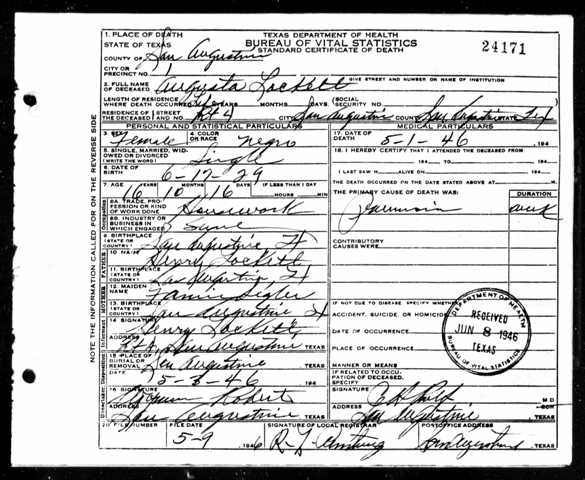 1. PLACE OF DEATH
STATE OF TEXAS
COUNTY OF San Augustine
TEXAS DEPARTMENT OF HEALTH
BUREAU OF VITAL STATISTICS
STANDARD CERTIFICATE OF DEATH
24171
CITY OR PRECINCT NO. 1
GIVE STREET AND NUMBER OR NAME OF INSTITUTION
2. FULL NAME OF DECEASED Augusta Lockett
LENGTH OF RESIDENCE WHERE DEATH OCCURRED YEARS MONTHS DAYS (SOCIAL SECURITY NO.
RESIDENCE OF THE DECEASED STREET AND NO. Rt 4 CITY San Augustine COUNTY San Augustine STATE Tx
PERSONAL AND STATISTICAL PARTICULARS
MEDICAL PARTICULARS
3. SEX Female
4. COLOR OR RACE Negro
17. DATE OF DEATH 5-1-46 194
5. SINGLE, MARRIED, WIDOWED OR DIVORCED (WRITE THE WORD) Single
18. I HEREBY CERTIFY THAT I ATTENDED THE DECEASED FROM
194 TO 194
6. DATE OF BIRTH 6-17-29
I LAST SAW H ALIVE ON 194
7. AGE 16 YEARS 10 MONTHS 16 DAYS IF LESS THAN 1 DAY HOURS MIN
THE DEATH OCCURRED ON THE DATE STATED ABOVE AT M.
8A. TRADE, PROFESSION OR KIND OF WORK DONE Housework
THE PRIMARY CAUSE OF DEATH WAS:
DURATION
8B. INDUSTRY OR BUSINESS IN WHICH ENGAGED Same
9. BIRTHPLACE (STATE OR COUNTRY) San Augustine, Tx
CONTRIBUTORY CAUSES WERE:
10. NAME Henry Lockett
11. BIRTHPLACE (STATE OR COUNTRY) San Augustine, Tx
12. MAIDEN NAME Fannie
13. BIRTHPLACE (STATE OR COUNTRY) San Augustine Tx
IF NOT DUE TO DISEASE, SPECIFY WHETHER:
ACCIDENT, SUICIDE OR HOMICIDE
14. SIGNATURE Henry Lockett
DATE OF OCCURRENCE
ADDRESS San Augustine TEXAS
PLACE OF OCCURRENCE
DEPARTMENT OF HEALTH
RECEIVED
JUN 8 1946
TEXAS
BUREAU OF VITAL STATISTICS
15. PLACE OF BURIAL OR REMOVAL San Augustine TEXAS
MANNER OR MEANS
5-3-46 194
IF RELATED TO OCCUPATION OF DECEASED, SPECIFY
16. SIGNATURE
SIGNATURE M D
ADDRESS San Augustine TEXAS
ADDRESS San Augustine TEXAS
FILE NUMBER FILE DATE 5-9 194 6
SIGNATURE OF LOCAL REGISTRAR
POSTOFFICE ADDRESS San Augustine
NOTE THE INFORMATION CALLED FOR ON THE REVERSE SIDE